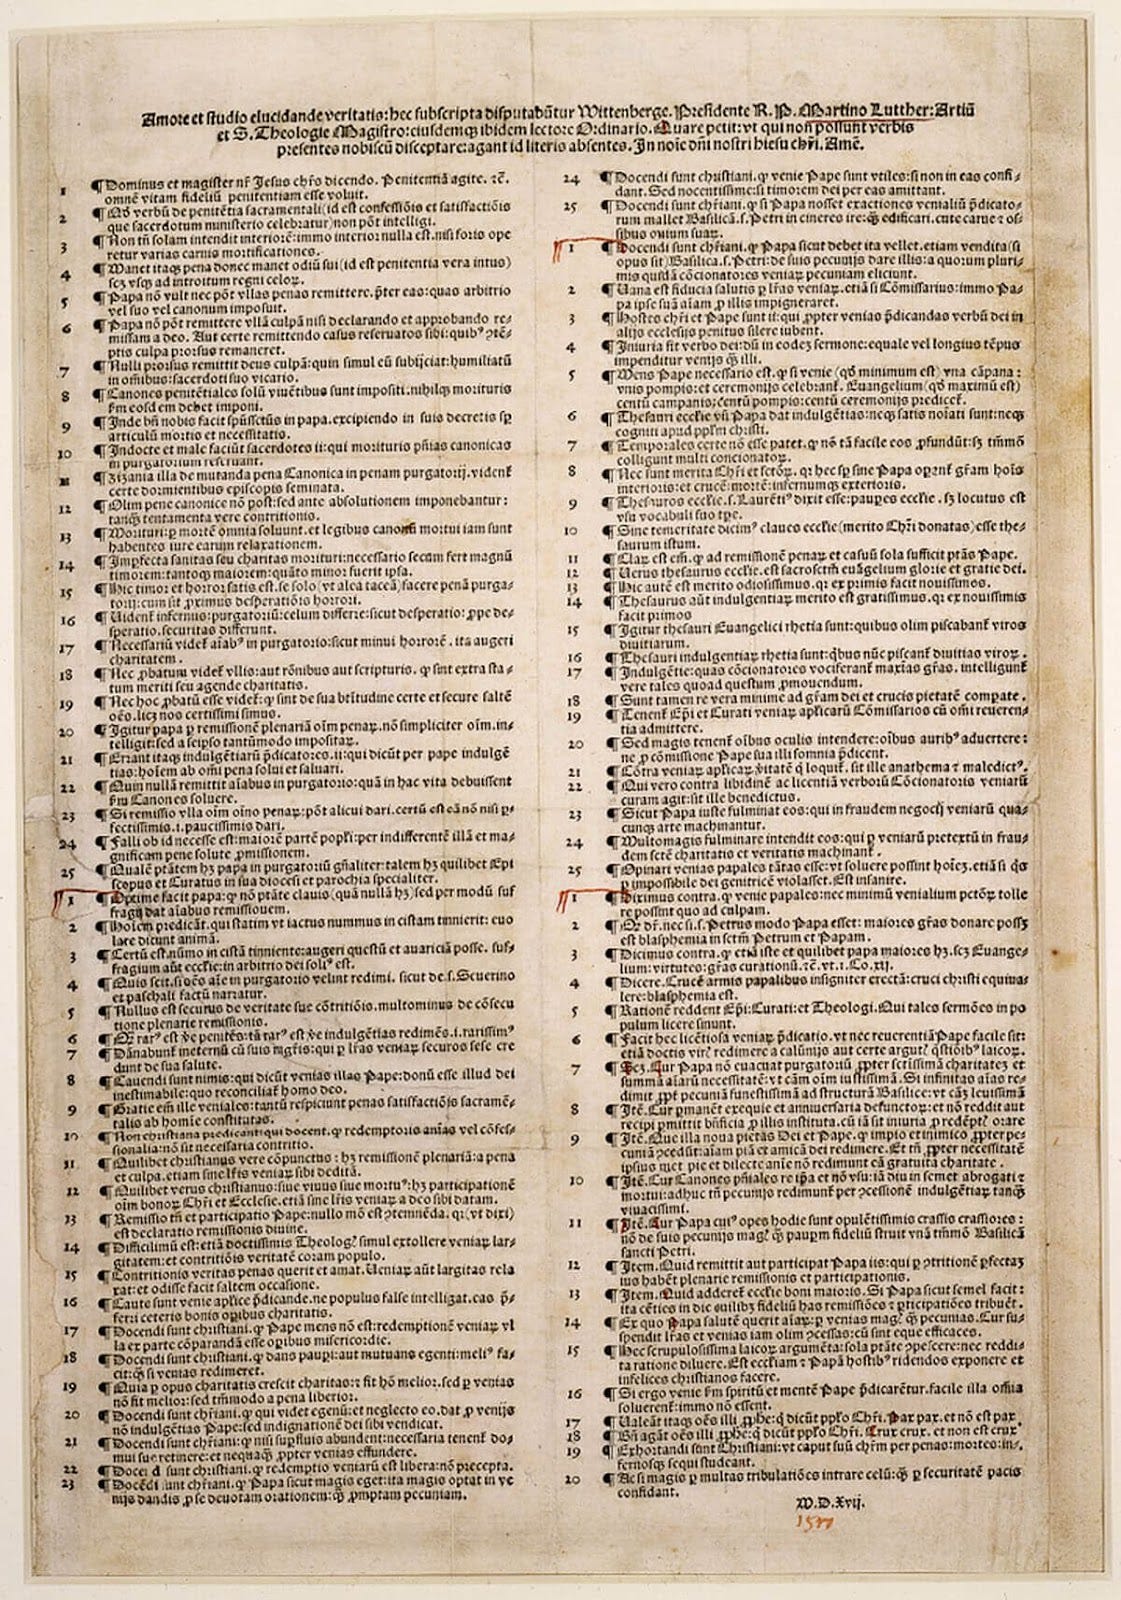 Amore et studio elucidande veritatis: hec subscripta disputabũtur Wittenberge. Presidente R. P. Martino Lutther: Artiũ
et S. Theologie Magistro: eiusdemq; ibidem lectore Ordinario. Quare petit: vt qui non possunt verbis
presentes nobiscũ disceptare: agant id literis absentes. In noĩe dñi nostri hiesu chr̃i. Amẽ.
1 ¶ Dominus et magister nr̃ Jesus chr̃s dicendo. Penitentiã agite. ⁊c̃.
omnẽ vitam fideliũ penitentiam esse voluit.
2 ¶ Qđ verbũ de penitẽtia sacramentali (id est confessiõis et satisfactiõis
que sacerdotum ministerio celebratur) non põt intelligi.
3 ¶ Non tñ solam intendit interiorẽ: immo interior nulla est. nisi foris ope
retur varias carnis mortificationes.
4 ¶ Manet itaq; pena donec manet odiũ sui (id est penitentia vera intus)
scz vsq; ad introitum regni celoꝝ.
5 ¶ Papa nõ vult nec põt vllas penas remittere. p̃ter eas: quas arbitrio
vel suo vel canonum imposuit.
6 ¶ Papa nõ põt remittere vllã culpã nisi declarando et approbando re-
missam a deo. Aut certe remittendo casus reseruatos sibi: quibꝰ ꝯtẽ-
ptis culpa prorsus remaneret.
7 ¶ Nulli prorsus remittit deus culpã: quin simul eũ subijciat: humiliatũ
in om̃ibus: sacerdoti suo vicario.
8 ¶ Canones penitẽtiales solũ viuẽtibus sunt impositi: nihilq; morituris
ẜm eosdem debet imponi.
9 ¶ Inde bñ nobis facit sp̃ussctũs in papa. excipiendo in suis decretis sꝑ
articulũ mortis et necessitatis.
10 ¶ Indocte et male faciũt sacerdotes ii: qui morituris pñias canonicas
in purgatorium reseruant.
11 ¶ Zizania illa de mutanda pena Canonica in penam purgatorij. videnť
certe dormientibus episcopis seminata.
12 ¶ Olim pene canonice nõ post: sed ante absolutionem imponebantur:
tanq̃ tentamenta vere contritionis.
13 ¶ Morituri: ꝑ mortẽ omnia soluunt. et legibus canonũ mortui iam sunt
habentes iure earum relaxationem.
14 ¶ Imꝑfecta sanitas seu charitas morituri: necessario secum fert magnũ
timorem: tantoq; maiorem: quãto minor fuerit ipsa.
15 ¶ Hic timor et horror satis est. se solo (vt alea taceã) facere penã purga-
torij: cum sit ꝓximus desperatiõis horrori.
16 ¶ Videnť infernus: purgatoriũ: celum differre: sicut desperatio: ꝓpe de-
speratio. securitas differunt.
17 ¶ Necessariũ videť aĩabꝰ in purgatorio: sicut minui horrorẽ. ita augeri
charitatem.
18 ¶ Nec ꝓbatum videť vllis: aut rõnibus aut scripturis. ꝙ sint extra sta-
tum meriti seu agende charitatis.
19 ¶ Nec hoc ꝓbatũ esse videť: ꝙ sint de sua btĩtudine certe et secure saltẽ
oẽs. licz nos certissimi simus.
20 ¶ Igitur papa ꝑ remissionẽ plenariã oĩm penaꝝ. nõ simpliciter oĩm. in-
telligit: sed a seipso tantũmodo impositaꝝ.
21 ¶ Errant itaq; indulgẽtiarũ p̃dicatores. ii: qui dicũt per pape indulgẽ
tias: hoĩem ab omi pena solui et saluari.
22 ¶ Quin nullã remittit aĩabus in purgatorio: quã in hac vita debuissent
ẜm Canones soluere.
23 ¶ Si remissio vlla oĩm oĩno penaꝝ: põt alicui dari. certũ est eã nõ nisi ꝑ-
fectissimis .i. paucissimis dari.
24 ¶ Falli ob id necesse est: maiorẽ partẽ popľi: per indifferentẽ illã et ma-
gnificam pene solute ꝓmissionem.
25 ¶ Qualẽ ptãtem hz papa in purgatoriũ gñaliter: talem hz quilibet Epi
scopus et Curatus in sua diocesi et parochia specialiter.
1 ¶ Optime facit papa: ꝙ nõ ptãte clauis (quã nullã hz) sed per modũ suf
fragij dat aĩabus remissionem.
2 ¶ Hoĩem predicãt. qui statim vt iactus nummus in cistam tinnierit: euo
lare dicunt animã.
3 ¶ Certũ est. nũmo in cistã tinniente: augeri questũ et auariciã posse. suf-
fragium aũt eccľie: in arbitrio dei soliꝰ est.
4 ¶ Quis scit. si oẽs aĩe in purgatorio velint redimi. sicut de .s. Seuerino
et paschali factũ narratur.
5 ¶ Nullus est securus de veritate sue cõtritiõis. multominus de cõsecu
tione plenarie remissionis.
6 ¶ Qꝫ rarꝰ est ṽe penitẽs: tã rarꝰ est ṽe indulgẽtias redimẽs. i. rarissimꝰ
7 ¶ Dãnabunť ineternũ cũ suis mgr̃is: qui ꝑ lr̃as veniaꝝ securos sese cre
dunt de sua salute.
8 ¶ Cauendi sunt nimis: qui dicũt venias illas Pape: donũ esse illud dei
inestimabile: quo reconciliať homo deo.
9 ¶ Gratie em̃ ille veniales: tantũ respiciunt penas satisfactiõis sacramẽ-
talis ab homĩe constitutas.
10 ¶ Non christiana predicant: qui docent. ꝙ redemptoris aĩas vel cõfes-
sionalia: nõ sit necessaria contritio.
11 ¶ Quilibet christianus vere cõpunctus: hz remissionẽ plenariã: a pena
et culpa. etiam sine lr̃is veniaꝝ sibi debitã.
12 ¶ Quilibet verus christianus: siue viuus siue mortuꝰ: hz participationẽ
oĩm bonoꝝ Chr̃i et Ecclesie. etiã sine lr̃is veniaꝝ a deo sibi datam.
13 ¶ Remissio tñ et participatio Pape: nullo mõ est ꝯtemnẽda. qꝛ (vt dixi)
est declaratio remissionis diuine.
14 ¶ Difficilimũ est: etiã doctissimis Theologꝭ simul extollere veniaꝝ lar-
gitatem: et contritiõis veritatẽ coram populo.
15 ¶ Contritionis veritas penas querit et amat. Veniaꝝ aũt largitas rela
xat: et odisse facit saltem occasione.
16 ¶ Caute sunt venie apľice p̃dicande. ne populus false intelligat. eas p̃-
ferri ceteris bonis oꝑibus charitatis.
17 ¶ Docendi sunt christiani. ꝙ Pape mens nõ est: redemptionẽ veniaꝝ vl
la ex parte cõparandã esse oꝑibus misericordie.
18 ¶ Docendi sunt christiani. ꝙ dans pauꝑi: aut mutuans egenti: meliꝰ fa-
cit: q̃ si venias redimeret.
19 ¶ Quia ꝑ opus charitatis crescit charitas: ⁊ fit hõ melior. sed ꝑ venias
nõ fit melior: sed tm̃modo a pena liberior.
20 ¶ Docendi sunt chr̃iani. ꝙ qui videt egenũ: et neglecto eo. dat ꝓ venijs
nõ indulgẽtias Pape: sed indignationẽ dei sibi vendicat.
21 ¶ Docendi sunt chr̃iani: ꝙ nisi suꝑfluis abundent: necessaria tenenť do-
mui sue retinere: et nequaq̃ ꝓpter venias effundere.
22 ¶ Docẽdi sunt christiani. ꝙ redemptio veniarũ est libera: nõ precepta.
23 ¶ Docẽdi sunt chr̃iani. ꝙ Papa sicut magis eget: ita magis optat in ve
nijs dandis ꝓ se deuotam orationem: q̃ ꝓmptam pecuniam.
24 ¶ Docendi sunt christiani. ꝙ venie Pape sunt vtiles: si non in eas confi-
dant. Sed nocentissime: si timorem dei per eas amittant.
25 ¶ Docendi sunt chr̃iani. ꝙ si Papa nosset exactiones venialiũ p̃dicato-
rum mallet Basilicã .s. Petri in cineres ire: q̃ edificari. cute carne ⁊ os-
sibus ouium suaꝝ.
1 ¶ Docendi sunt chr̃iani. ꝙ Papa sicut debet ita vellet. etiam vendita (si
opus sit) Basilica .s. Petri: de suis pecunijs dare illis: a quorum pluri-
mis quosdã cõcionatores veniaꝝ pecuniam eliciunt.
2 ¶ Vana est fiducia salutis ꝑ lr̃as veniaꝝ. etiã si Cõmissarius: immo Pa-
pa ipse suã aĩam ꝓ illis impigneraret.
3 ¶ Hostes chr̃i et Pape sunt ii: qui ꝓpter venias p̃dicandas verbũ dei in
alijs ecclesijs penitus silere iubent.
4 ¶ Iniuria fit verbo dei: dũ in eodez sermone: equale vel longius tẽpus
impenditur venijs q̃ illi.
5 ¶ Mens Pape necessario est. ꝙ si venie (qđ minimum est) vna cãpana:
vnis pompis: et ceremonijs celebranť. Euangelium (qđ maximũ est)
centũ campanis: centũ pompis: centũ ceremonijs prediceť.
6 ¶ Thesauri eccľie vñ Papa dat indulgẽtias: neq; satis noĩati sunt: neq;
cogniti apud ppľm christi.
7 ¶ Temporales certe nõ esse patet. ꝙ nõ tã facile eos ꝓfundũt: sz tm̃mõ
colligunt multi concionatoꝝ.
8 ¶ Nec sunt merita Chr̃i et sctõꝝ. qꝛ hec sꝑ sine Papa oꝑanť gr̃am hoĩs
interioris: et crucẽ: mortẽ: infernumq; exterioris.
9 ¶ Thesauros eccľie .s. Laurẽtiꝰ dixit esse: pauꝑes eccľie. sz locutus est
vsu vocabuli suo tꝑe.
10 ¶ Sine temeritate dicimꝰ claues eccľie (merito Chr̃i donatas) esse the-
saurum istum.
11 ¶ Claꝝ est em̃. ꝙ ad remissionẽ penaꝝ et casuũ sola sufficit ptãs Pape.
12 ¶ Verus thesaurus eccľie. est sacrosctm̃ euãgelium glorie et gratie dei.
13 ¶ Hic autẽ est merito odiosissimus. qꝛ ex primis facit nouissimos.
14 ¶ Thesaurus aũt indulgentiaꝝ merito est gratissimus. qꝛ ex nouissimis
facit primos
15 ¶ Igitur thesauri Euangelici rhetia sunt: quibus olim piscabanť viros
diuitiarum.
16 ¶ Thesauri indulgentiaꝝ rhetia sunt: q̃bus nũc piscanť diuitias viroꝝ.
17 ¶ Indulgẽtie: quas cõcionatores vociferanť maxĩas gr̃as. intelligunť
vere tales quoad questum ꝓmouendum.
18 ¶ Sunt tamen re vera minime ad gr̃am dei et crucis pietatẽ compate.
19 ¶ Tenenť Ep̃i et Curati veniaꝝ apľicarũ Cõmissarios cũ om̃i reueren-
tia admittere.
20 ¶ Sed magis tenenť oĩbus oculis intendere: oĩbus auribꝰ aduertere:
ne ꝓ cõmissione Pape sua illi somnia p̃dicent.
21 ¶ Cõtra veniaꝝ apľicaꝝ ṽitatẽ q̃ loquiť. sit ille anathema ⁊ maledictꝰ.
22 ¶ Qui vero contra libidinẽ ac licentiã verborũ Cõcionatoris veniarũ
curam agit: sit ille benedictus.
23 ¶ Sicut Papa iuste fulminat eos: qui in fraudem negocij veniarũ qua-
cunq; arte machinantur.
24 ¶ Multomagis fulminare intendit eos: qui ꝑ veniarũ pretextũ in frau-
dem sctẽ charitatis et veritatis machinanť.
25 ¶ Opinari venias papales tãtas esse: vt soluere possint hoĩez. etiã si q̃s
ꝑ impossibile dei genitricẽ violasset. Est insanire.
1 ¶ Diximus contra. ꝙ venie papales: nec minimum venialium pctõꝝ tolle
re possint quo ad culpam.
2 ¶ Qđ dr̃. nec si .s. Petrus modo Papa esset: maiores gr̃as donare possz
est blasphemia in sctm̃ Petrum et Papam.
3 ¶ Dicimus contra. ꝙ etiã iste et quilibet papa maiores hz. scz Euange-
lium: virtutes: gr̃as curationũ. ⁊c̃. vt .i. Co. xij.
4 ¶ Dicere. Crucẽ armis papalibus insigniter erectã: cruci christi equiua-
lere: blasphemia est.
5 ¶ Rationẽ reddent Ep̃i: Curati: et Theologi. Qui tales sermões in po
pulum licere sinunt.
6 ¶ Facit hec licẽtiosa veniaꝝ p̃dicatio. vt nec reuerentiã Pape facile sit:
etiã doctis virꝭ redimere a calũnijs aut certe argutꝭ q̃stiõibꝰ laicoꝝ.
7 ¶ Scz. Cur Papa nõ euacuat purgatoriũ ꝓpter sctissimã charitatez et
summã aĩarũ necessitatẽ: vt cãm oĩm iustissimã. Si infinitas aĩas re-
dimit ꝓpť pecuniã funestissimã ad structurã Basilice: vt cãz leuissimã
8 ¶ Itẽ. Cur ꝑmanẽt exequie et anniuersaria defunctoꝝ: et nõ reddit aut
recipi ꝑmittit bñficia ꝓ illis instituta. cũ iã sit iniuria ꝓ redẽptꝭ orare
9 ¶ Itẽ. Que illa noua pietas Dei et Pape. ꝙ impio et inimico ꝓpter pe-
cuniã ꝯcedũt: aĩam piã et amicã dei redimere. Et tñ ꝓpter necessitatẽ
ipsius met pie et dilecte aĩe nõ redimunt eã gratuita charitate.
10 ¶ Itẽ. Cur Canones pñiales re ip̃a et nõ vsu: iã diu in semet abrogati ⁊
mortui: adhuc tñ pecunijs redimunť per ꝯcessionẽ indulgẽtiaꝝ tanq̃
viuacissimi.
11 ¶ Itẽ. Cur Papa cuiꝰ opes hodie sunt opulẽtissimis crassis crassiores:
nõ de suis pecunijs magꝭ q̃ pauꝑum fideliũ struit vnã tm̃mõ Basilicã
sancti Petri.
12 ¶ Item. Quid remittit aut participat Papa iis: qui ꝑ ꝯtritionẽ ꝑfectaz
ius habẽt plenarie remissionis et participationis.
13 ¶ Item. Quid addereť eccľie boni maioris. Si Papa sicut semel facit:
ita cẽties in die cuilibz fideliũ has remissiões ⁊ ꝑticipatiões tribuẽt.
14 ¶ Ex quo Papa salutẽ querit aĩaꝝ: ꝑ venias magꝭ q̃ pecunias. Cur su-
spendit lr̃as et venias iam olim ꝯcessas: cũ sint eque efficaces.
15 ¶ Hec scrupulosissima laicoꝝ argumẽta: sola ptãte ꝯpescere: nec reddi-
ta ratione diluere. Est eccľiam ⁊ Papã hostibꝰ ridendos exponere et
infelices christianos facere.
16 ¶ Si ergo venie ẜm spiritũ et mentẽ Pape p̃dicarẽtur. facile illa om̃ia
soluerenť: immo nõ essent.
17 ¶ Valeãt itaq; oẽs illi ꝓphẽ: q̃ dicũt ppľo Chr̃i. Pax pax. et nõ est pax.
18 ¶ Bñ agãt oẽs illi ꝓphẽ: q̃ dicũt ppľo Chr̃i. Crux crux. et non est crux
19 ¶ Exhortandi sunt Christiani: vt caput suũ chr̃m per penas: mortes: in-
fernosq; sequi studeant.
20 ¶ Ac si magis ꝑ multas tribulatiões intrare celũ: q̃ ꝑ securitatẽ pacis
confidant.
M. D. Xvij.
1517